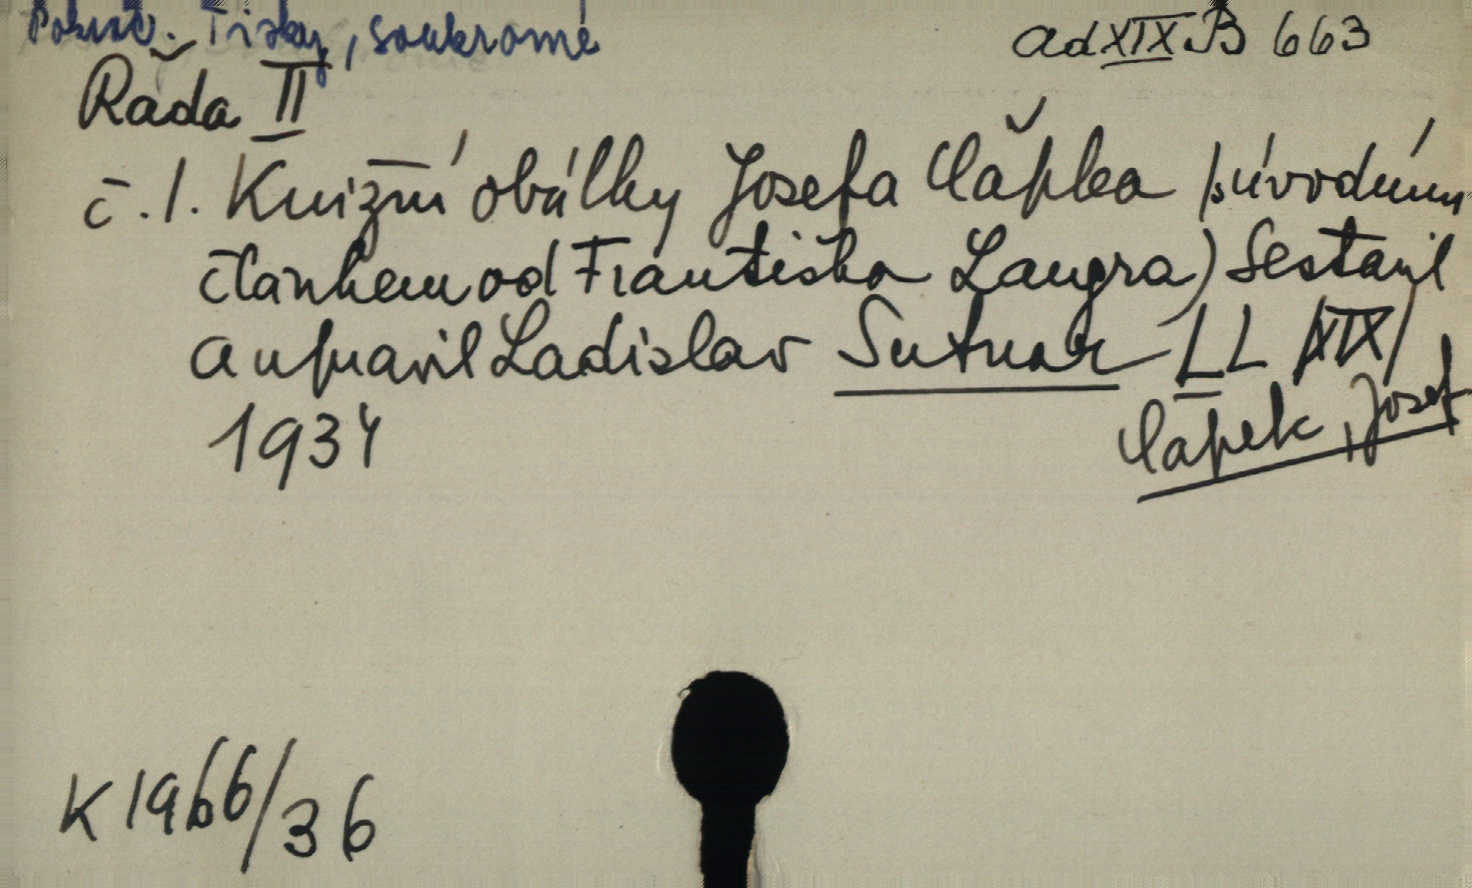 Pokrač. Tisky, soukromé
ad XIX B 663
Řada II
č.1. Knižní obálky Josefa Čapka /súvodním
článkem od Františka Langra) Sestavil
a upravil Ladislav Sutnar LL /XIX/
1934
Čapek, Josef
K 1966/36